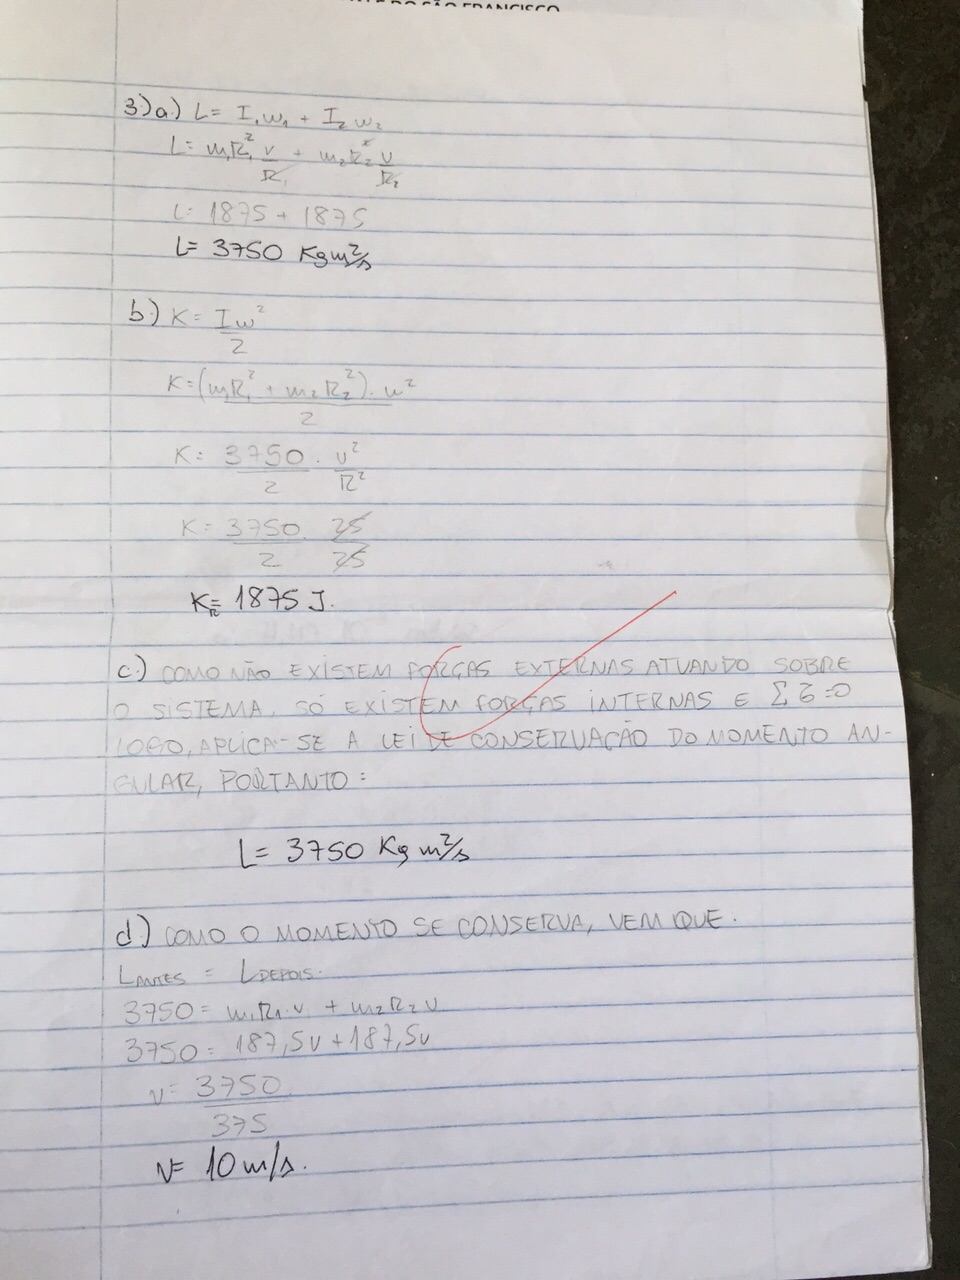 SÃO FRANCISCO
3)a) L= I₁w₁ + I₂w₂
L= m₁R₁² v/R₁ + m₂R₂² v/R₂
L= 1875 + 1875
L= 3750 Kgm²/s
b) K= Iw²/2
K=(m₁R₁² + m₂R₂²).w²/2
K= 3750/2 . v²/R²
K= 3750/2 . 25/25
K= 1875 J.
c) COMO NÃO EXISTEM FORÇAS EXTERNAS ATUANDO SOBRE
O SISTEMA, SÓ EXISTEM FORÇAS INTERNAS E Σ τ=0
LOGO, APLICA-SE A LEI DE CONSERVAÇÃO DO MOMENTO AN-
GULAR, PORTANTO:
L= 3750 Kg m²/s
d) COMO O MOMENTO SE CONSERVA, VEM QUE.
LANTES = LDEPOIS.
3750= m₁R₁.v + m₂R₂v
3750= 187,5v+187,5v
v= 3750/375
v= 10m/s.